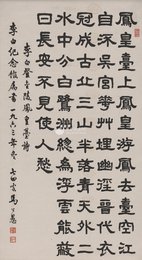 鳳皇臺上鳳皇游鳳去臺空江
自流吳宮華艸埋幽徑晉代衣
冠成古丘三山半落青天外二
水中分白鷺洲總爲浮雲能蔽
日長安不見使人愁
李白登金陵鳳皇臺詩
李白紀念館屬書一九六三年冬
七四叟馬公愚